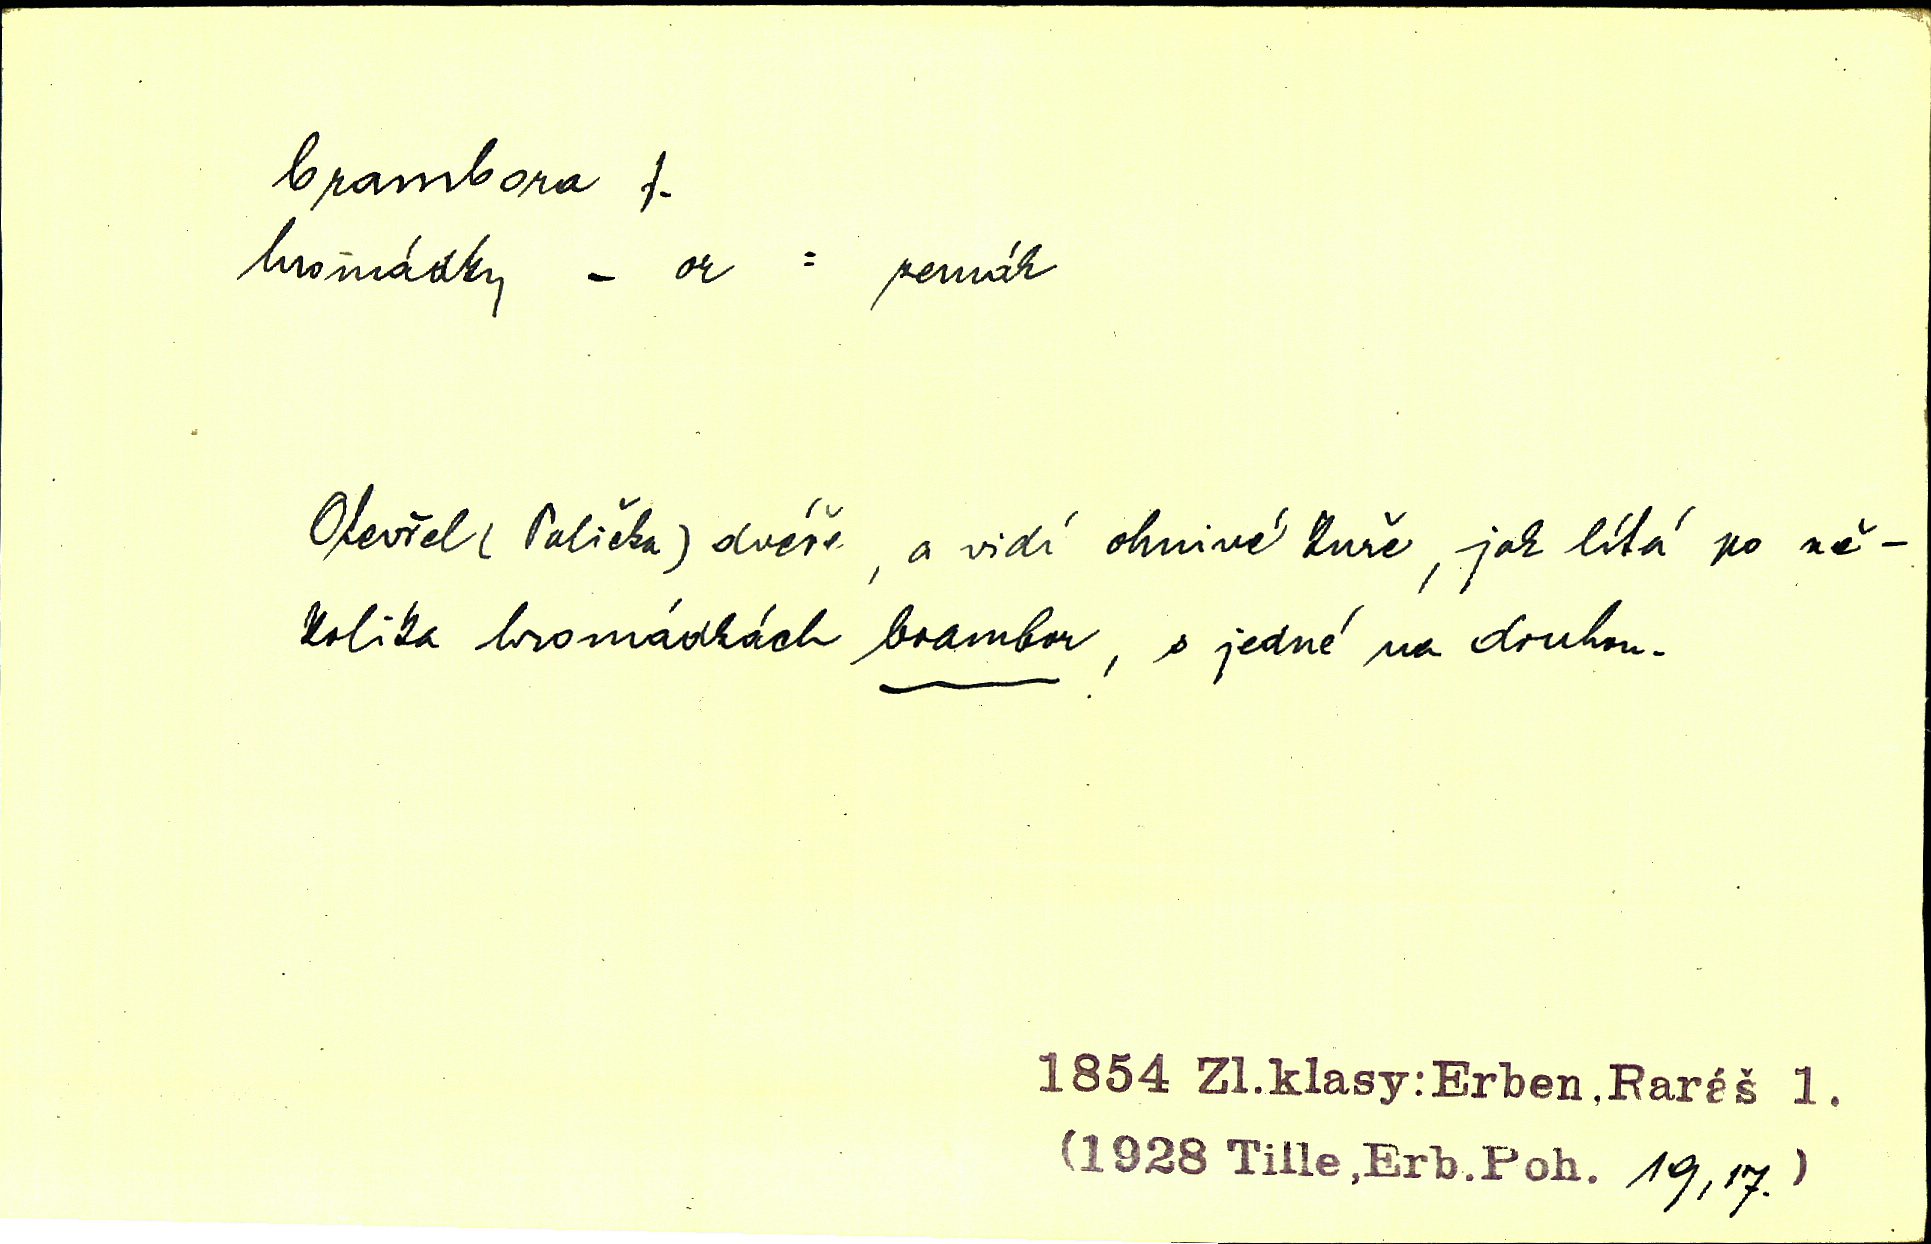 brambora f.
hromádky - or = zemák
Otevřel (Palička) dvéře, a vidí ohnivé kuře, jak lítá po ně-
kolika hromádkách brambor, s jedné na druhou.
1854 Zl.klasy:Erben,Raráš 1.
(1928 Tille,Erb.Poh. 19,17.)